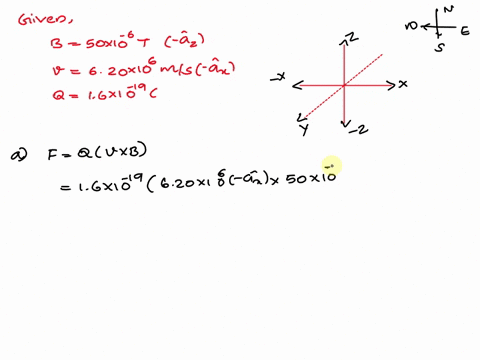 Given,
B = 50×10⁻⁶ T (-âz)
V = 6.20×10⁶ m/s (-âx)
Q = 1.6×10⁻¹⁹ C
Z
-X
X
Y
-Z
N
E
S
a) F = Q(V×B)
= 1.6×10⁻¹⁹ ( 6.20×10⁶ (-âx) × 50×10⁻